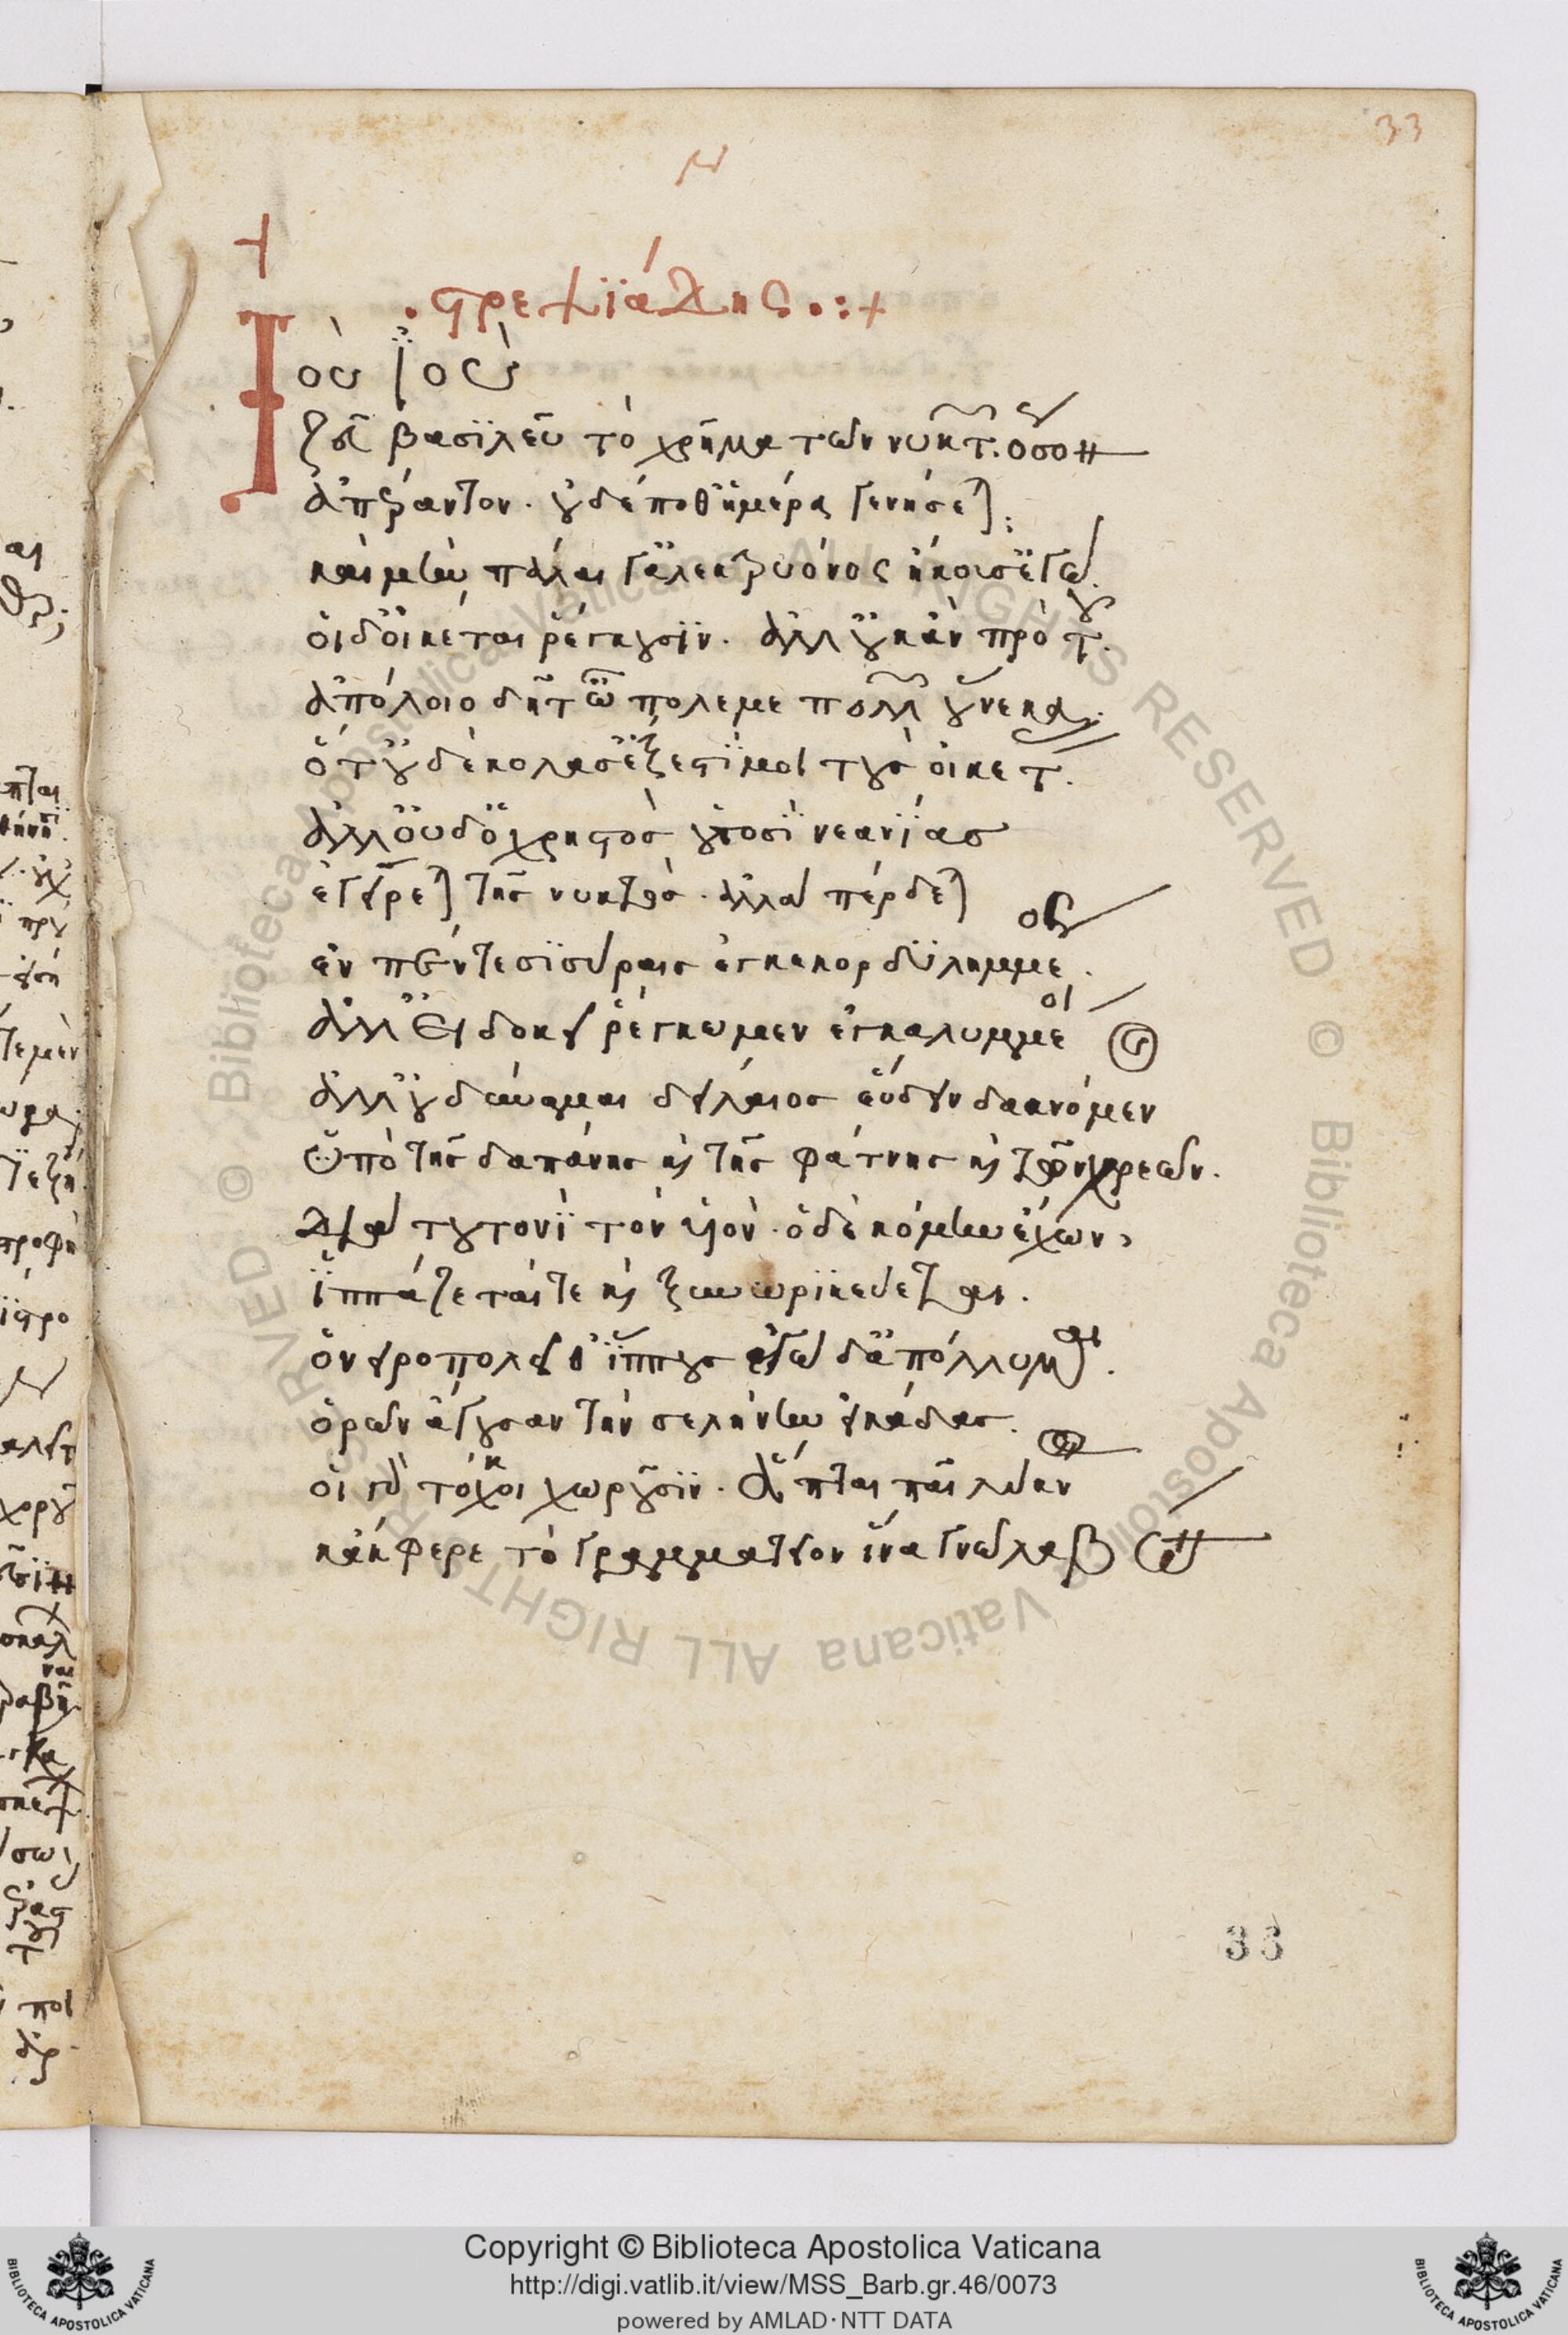 33
· στρεψϊάδης · : +
Ἰοὺ ἰοὺ
ζεῦ βασϊλεῦ τὸ χρῆμα τῶν νυκτῶν ὅσον
ἀπέραντον. οὐδέποθ ἡμέρα γενήσεται;
καὶ μὴν πάλαι γ ἀλεκτρυόνος ἤκουσ ἐγώ.
οἱ δ οἰκέται ῥέγκουσϊν. ἀλλ οὐκ ἂν πρὸ τοῦ.
ἀπόλοιο δῆτ ὦ πόλεμε πολλῶν οὕνεκα.
ὅτ οὐδὲ κολάσ ἔξεστϊ μοι τοὺς οἰκέτας.
ἀλλ οὐδ ὁ χρηστὸς οὑτοσῒ νεανΐας
ἐγείρεται τῆς νυκτὸς. ἀλλὰ πέρδεται
ἐν πέντε σϊσύραις ἐγκεκορδϋλημμένος.
ἀλλ εἰ δοκεῖ ῥέγκωμεν ἐγκαλυμμένοι
ἀλλ οὐ δύναμαι δείλαιος εὕδειν δακνόμενος
ὑπὸ τῆς δαπάνης καὶ τῆς φάτνης καὶ τῶν χρεῶν.
διὰ τουτονῒ τὸν υἱόν. ὁ δὲ κόμην ἔχων,
ϊππάζεταί τε καὶ ξυνωρϊκεύεται.
ὀνειροπολεῖ θ ἵππους ἐγὼ δ ἀπόλλυμαι.
ὁρῶν ἄγουσαν τὴν σελήνην εἰκάδας.
οἱ γὰρ τόκοι χωροῦσϊν. ἅπτε παῖ λύχνον
κἄκφερε τὸ γραμματεῖον ἵνα γνῶ λαβὼν
33
Copyright © Biblioteca Apostolica Vaticana
http://digi.vatlib.it/view/MSS_Barb.gr.46/0073
powered by AMLAD · NTT DATA
BIBLIOTECA APOSTOLICA VATICANA
BIBLIOTECA APOSTOLICA VATICANA